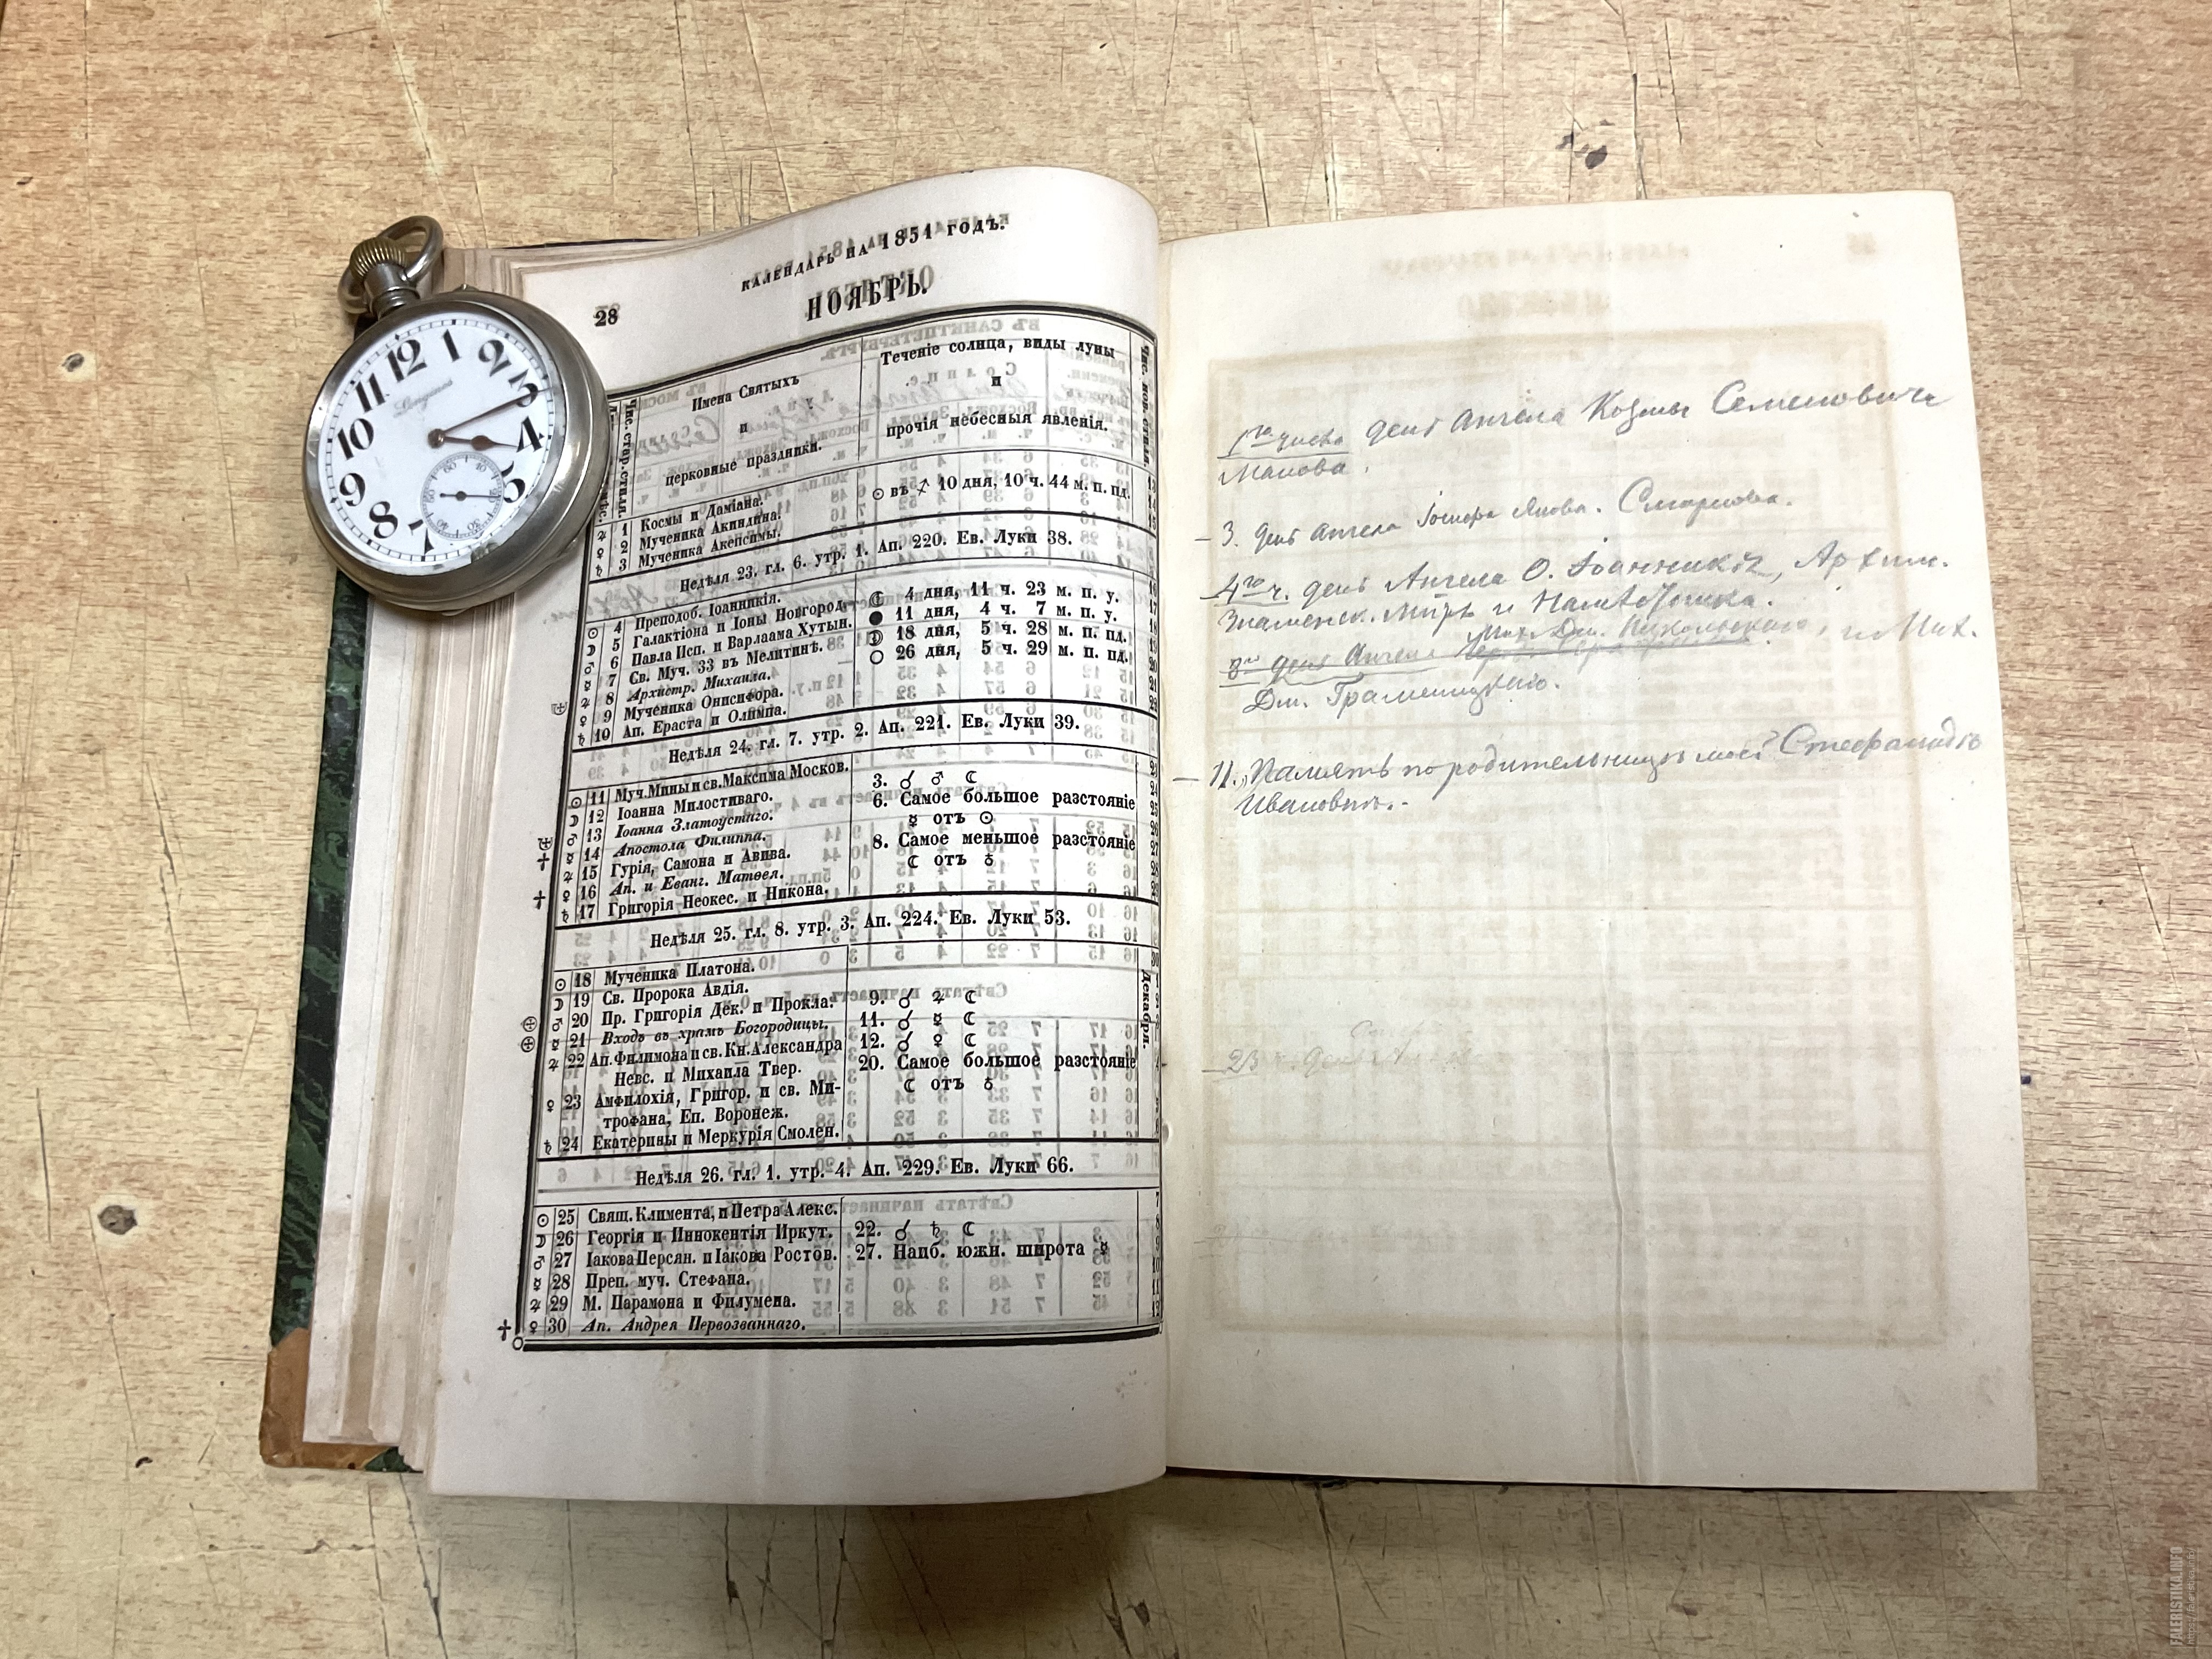 КАЛЕНДАРЬ НА 1851 ГОДЪ.
28
НОЯБРЬ.
Чис. стар. стиля.
Имена Святыхъ
и
церковные праздники.
Теченіе солнца, виды луны
и
прочія небесныя явленія.
Чис. нов. стиля.
♃ 1 Космы и Даміана.
♀ 2 Мученика Акиндина.
♄ 3 Мученика Акепсимы.
☉ въ ♐ 10 дня, 10 ч. 44 м. п. пд.
Недѣля 23. гл. 6. утр. 1. Ап. 220. Ев. Луки 38.
☉ 4 Преподоб. Іоанникія.
☽ 5 Галактіона и Іоны Новгород.
♂ 6 Павла Исп. и Варлаама Хутын.
☿ 7 Св. Муч. 33 въ Мелитинѣ.
♃ 8 Архистр. Михаила.
♀ 9 Мученика Онисифора.
♄ 10 Ап. Ераста и Олимпа.
4 дня, 11 ч. 23 м. п. у.
11 дня, 4 ч. 7 м. п. у.
18 дня, 5 ч. 28 м. п. пд.
26 дня, 5 ч. 29 м. п. пд.
Недѣля 24. гл. 7. утр. 2. Ап. 221. Ев. Луки 39.
☉ 11 Муч. Мины и св. Максима Москов.
☽ 12 Іоанна Милостиваго.
♂ 13 Іоанна Златоустаго.
☿ 14 Апостола Филиппа.
♃ 15 Гурія, Самона и Авива.
♀ 16 Ап. и Еванг. Матѳея.
♄ 17 Григорія Неокес. и Никона.
3. ☌ ♂ ☾
6. Самое большое разстояніе
☿ отъ ☉
8. Самое меньшое разстояніе
☾ отъ ♁
Недѣля 25. гл. 8. утр. 3. Ап. 224. Ев. Луки 53.
☉ 18 Мученика Платона.
☽ 19 Св. Пророка Авдія.
♂ 20 Пр. Григорія Дек. и Прокла.
☿ 21 Входъ въ храмъ Богородицы.
♃ 22 Ап. Филимона и св. Кн. Александра
Невс. и Михаила Твер.
♀ 23 Амфилохія, Григор. и св. Ми-
трофана, Еп. Воронеж.
♄ 24 Екатерины и Меркурія Смолен.
9. ☌ ♃ ☾
11. ☌ ☿ ☾
12. ☌ ♀ ☾
20. Самое большое разстояніе
☾ отъ ♁
Декабря.
Недѣля 26. гл. 1. утр. 4. Ап. 229. Ев. Луки 66.
☉ 25 Свящ. Климента, и Петра Алекс.
☽ 26 Георгія и Иннокентія Иркут.
♂ 27 Іакова Персян. и Іакова Ростов.
☿ 28 Преп. муч. Стефана.
♃ 29 М. Парамона и Филумена.
♀ 30 Ап. Андрея Первозваннаго.
22. ☌ ♄ ☾
27. Наиб. южн. широта ☿
1го числа день Ангела Козмы Семеновича
Манова.
3. день Ангела Смирнова.
4го ч. день Ангела О. Іоанникія, Архим.
Знаменск.
8го день Ангела Мих. Дм. Никольскаго, и Мих.
Дм. Граменицкаго.
11. Память по родительницѣ моей Стефанидѣ
Ивановнѣ.
23 день
Longines
12 1 2 3 4 5 7 8 9 10 11
FALERISTIKA.INFO
https://faleristika.info/